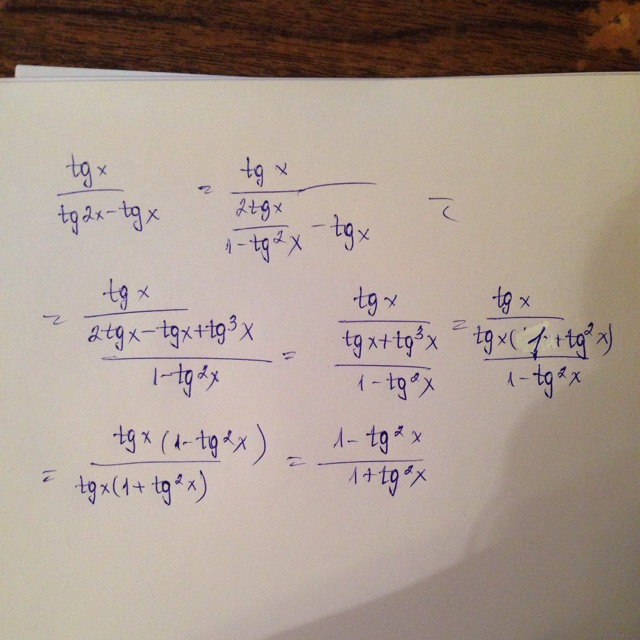 tgx / tg2x-tgx = tgx / (2tgx / 1-tg²x - tgx) =
= tgx / (2tgx-tgx+tg³x / 1-tg²x) = tgx / (tgx+tg³x / 1-tg²x) = tgx / (tgx(1+tg²x) / 1-tg²x)
= tgx(1-tg²x) / tgx(1+tg²x) = 1-tg²x / 1+tg²x